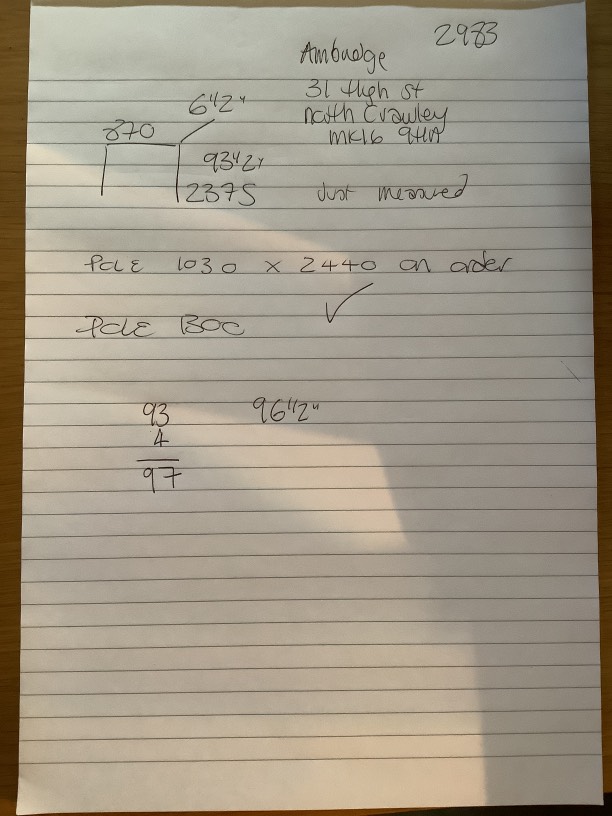 2983
Ambudge
31 High St
north Crawley
MK16 9HA
6 1/2"
870
93 1/2"
2375
Just measured
PCLE 1030 x 2440 on order
✓
PCLE BOC
93
4
97
96 1/2"